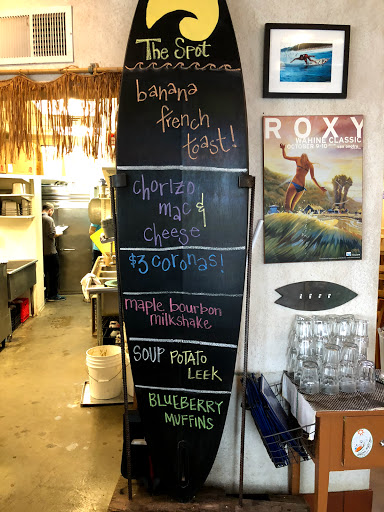 The Spot
banana
french
toast!
chorizo
mac &
cheese
$3 coronas!
maple bourbon
milkshake
SOUP POTATO
LEEK
BLUEBERRY
MUFFINS
ROXY
WAHINE CLASSIC
OCTOBER 9-10